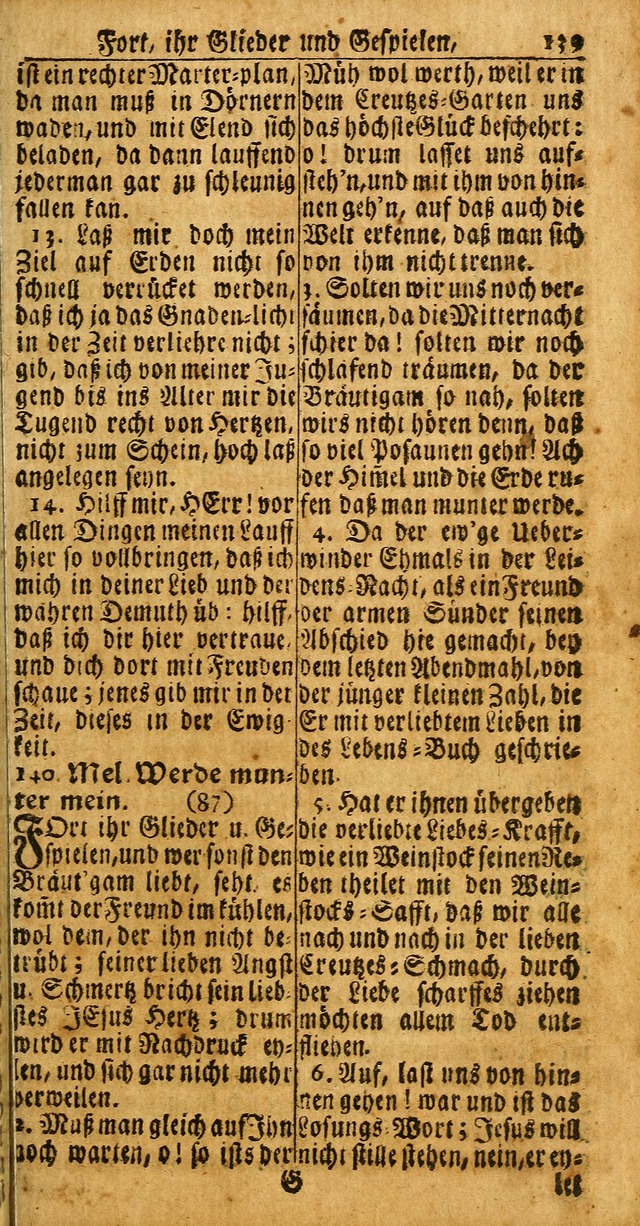 Fort, ihr Glieder und Gespielen, 139
ist ein rechter Marter-plan,
da man muß in Dörnern
waden, und mit Elend sich
beladen, da dann lauffend
jederman gar zu schleunig
fallen kan.
13. Laß mir doch mein
Ziel auf Erden nicht so
schnell verrücket werden,
daß ich ja das Gnaden-licht
in der Zeit verliehre nicht;
gib, daß ich von meiner Ju-
gend bis ins Alter mir die
Tugend recht von Hertzen,
nicht zum Schein, hoch laß
angelegen seyn.
14. Hilff mir, HErr! vor
allen Dingen meinen Lauff
hier so vollbringen, daß ich
mich in deiner Lieb und der
wahren Demuth üb: hilff,
daß ich dir hier vertraue,
und dich dort mit Freuden
schaue; jenes gib mir in der
Zeit, dieses in der Ewig-
keit.
140. Mel. Werde mun-
ter mein. (87)
FOrt ihr Glieder u. Ge-
spielen, und wer sonst den
Bräut'gam liebt, seht es
kom̃t der Freund im kühlen,
wol dem, der ihn nicht be-
trübt; seiner lieben Angst
u. Schmertz bricht sein lieb-
stes JEsus Hertz; drum
wird er mit Nachdruck ey-
len, und sich gar nicht mehr
verweilen.
2. Muß man gleich auf Ihn
noch warten, o! so ists der
Müh wol werth, weil er in
dem Creutzes-Garten uns
das höchste Glück beschehrt:
o! drum lasset uns auf-
steh'n, und mit ihm von hin-
nen geh'n, auf daß auch die
Welt erkenne, daß man sich
von ihm nicht trenne.
3. Solten wir uns noch ver-
säumen, da die Mitternacht
schier da! solten wir noch
schlafend träumen, da der
Bräutigam so nah, solten
wirs nicht hören denn, daß
so viel Posaunen gehn! Ach
der Him̃el und die Erde ru-
fen daß man munter werde.
4. Da der ew'ge Ueber-
winder Ehmals in der Lei-
dens-Nacht, als ein Freund
der armen Sünder seinen
Abschied hie gemacht, bey
dem letzten Abendmahl, von
der jünger kleinen Zahl, die
Er mit verliebtem Lieben in
des Lebens-Buch geschrie-
ben.
5. Hat er ihnen übergeben
die verliebte Liebes-Krafft,
wie ein Weinstock seinen Re-
ben theilet mit den Wein-
stocks-Safft, daß wir alle
nach und nach in der lieben
Creutzes-Schmach, durch
der Liebe scharffes ziehen
möchten allem Tod ent-
fliehen.
6. Auf, last uns von hin-
nen gehen! war und ist das
Losungs-Wort; Jesus will
nicht stille stehen, nein, er ey-
G let